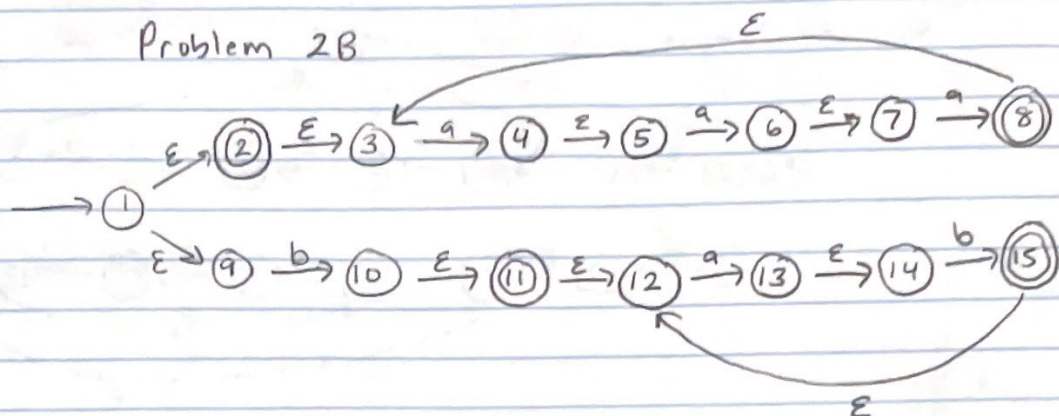 Problem 2B
ε
ε 2 ε 3 a 4 ε 5 a 6 ε 7 a 8
1
ε 9 b 10 ε 11 ε 12 a 13 ε 14 b 15
ε